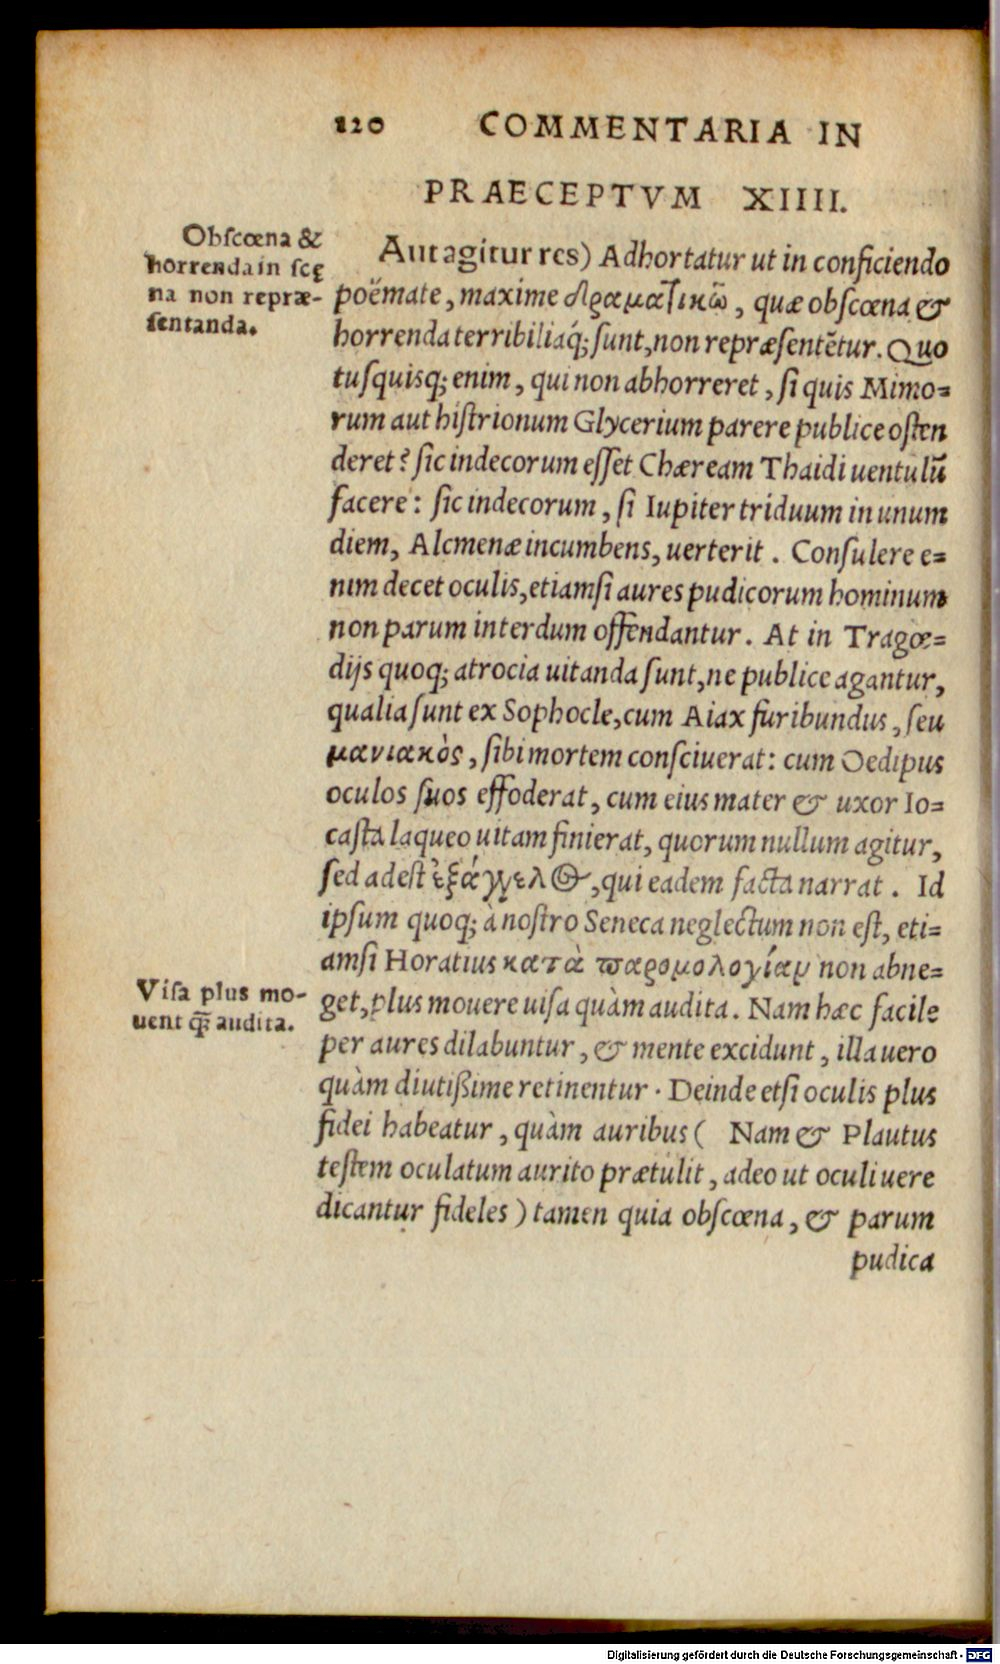 120 COMMENTARIA IN
PRAECEPTVM XIIII.
Obscœna &
horrenda in scę
na non repræ-
sentanda.
Aut agitur res) Adhortatur ut in conficiendo
poëmate, maxime δραματικῶ, quæ obscœna &
horrenda terribiliaq́; sunt, non repræsentẽtur. Quo
tusquisq; enim, qui non abhorreret, si quis Mimo=
rum aut histrionum Glycerium parere publice osten
deret? sic indecorum esset Chæream Thaidi uentulũ
facere: sic indecorum, si Iupiter triduum in unum
diem, Alcmenæ incumbens, uerterit. Consulere e=
nim decet oculis, etiamsi aures pudicorum hominum
non parum interdum offendantur. At in Tragœ=
dijs quoq; atrocia uitanda sunt, ne publice agantur,
qualia sunt ex Sophocle, cum Aiax furibundus, seu
μανιακὸς, sibi mortem consciuerat: cum Oedipus
oculos suos effoderat, cum eius mater & uxor Io=
casta laqueo uitam finierat, quorum nullum agitur,
sed adest ἐξάγγελος, qui eadem facta narrat. Id
ipsum quoq; à nostro Seneca neglectum non est, eti=
amsi Horatius κατὰ παρομολογίαν non abne=
Visa plus mo-
uent q̃; audita.
get, plus mouere uisa quàm audita. Nam hæc facile
per aures dilabuntur, & mente excidunt, illa uero
quàm diutißime retinentur. Deinde etsi oculis plus
fidei habeatur, quàm auribus ( Nam & Plautus
testem oculatum aurito prætulit, adeo ut oculi uere
dicantur fideles) tamen quia obscœna, & parum
pudica
Digitalisierung gefördert durch die Deutsche Forschungsgemeinschaft - DFG